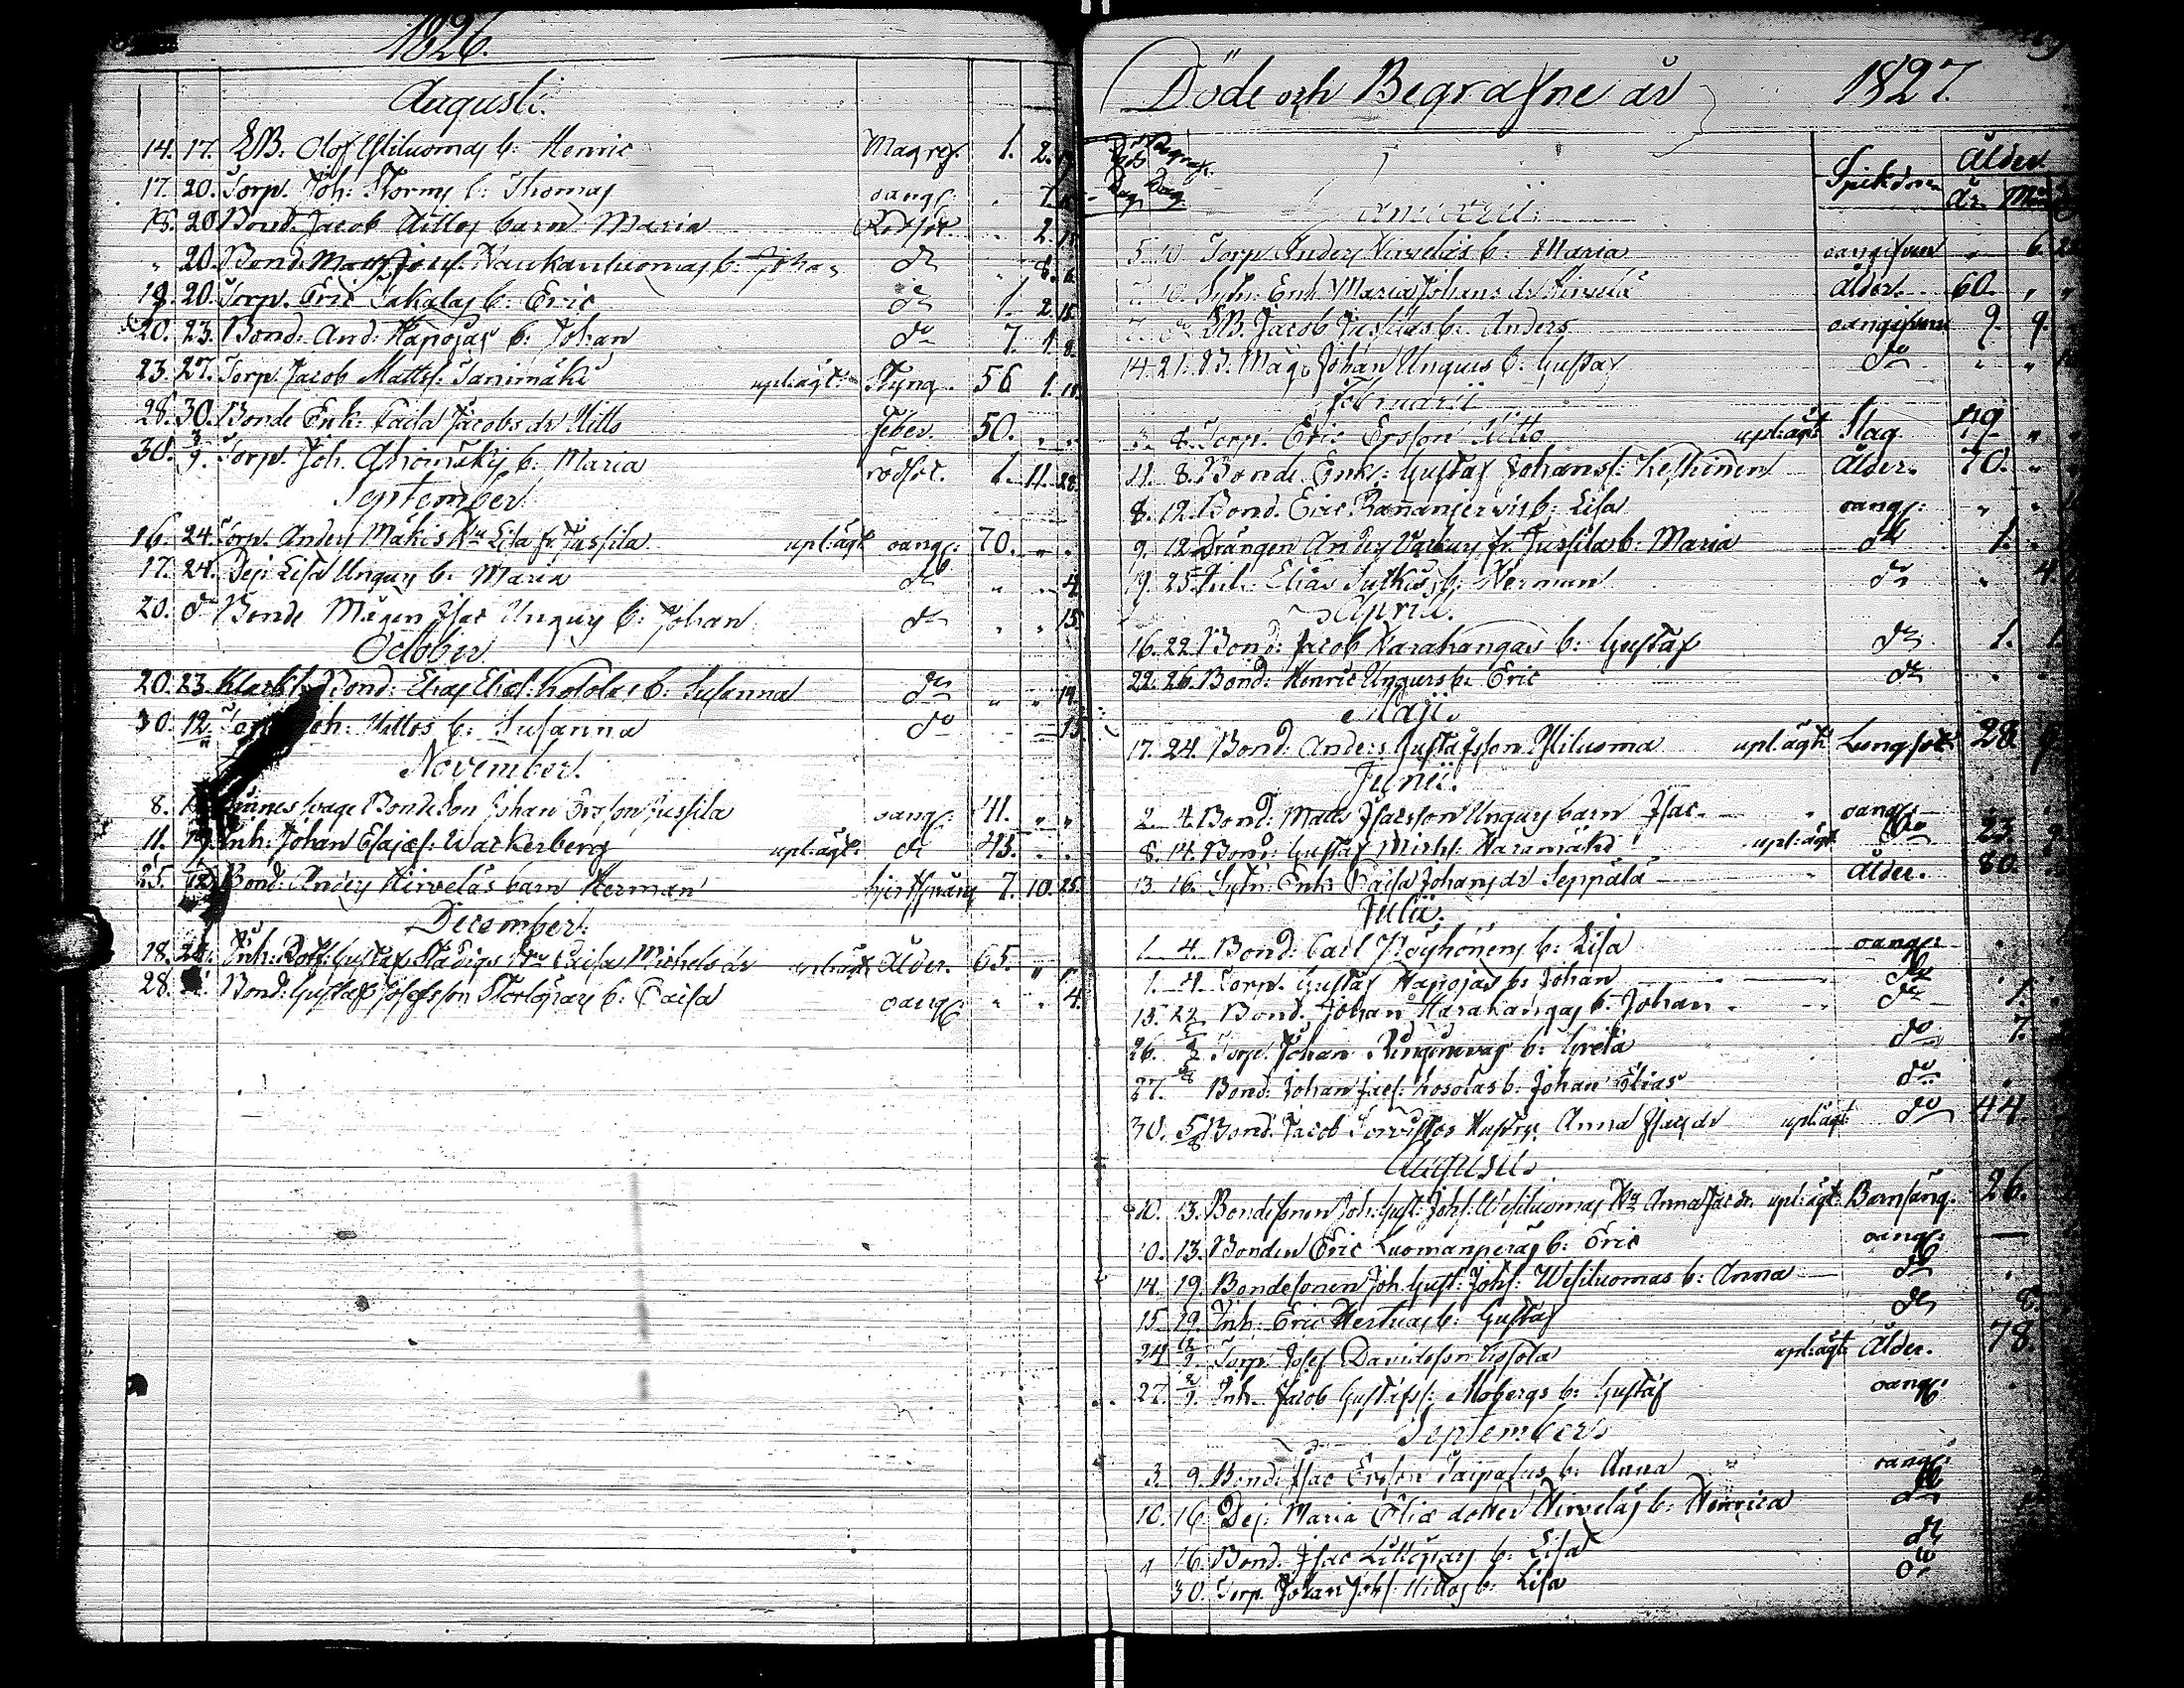 1826.
Augusti.
14. 17. LB. Olof Yliluomas b: Henric Magrs. 1. 2.
17. 20. Torp. Joh: Storms b: Thomas oangf: 7.
18. 20 Bond. Jacob Uittos barn Maria Rödsot 2. 15
" 20. Bond. Matts Josefs: Haukanluomas b: do 8. 6
18. 20. Torp. Eric Jakalas b: Eric do 1. 2. 15
20. 23. Bond: And: Hapojas b: Johan do 7. 1. 8.
23. 27. Torp. Jacob Matts: Tanimäki upl: ägt: Styng. 56 1. 10.
28. 30. Bonde Enk. Caisa Jacobs dr Uitto Feber. 50. " "
30. 3/9. Torp. Joh. b: Maria rödsot. 1. 11. 28.
September
16. 24. Torp. Anders Mäkis Hu Lisa fr. Jussila. upl: ägt oangf: 70. " "
17. 24. Pig: Lisa Ungus b: Maria do " " 4
20. do Bonde Mågen Isac Ungus b: Johan do " " 15.
October
20. 23. Bond: Elias Elias: Kosolas b: Susanna do " " 14.
30. 12/11 Torp. Joh: Uittos b: Susanna do 15.
November.
8. Bondeson Johan Ersson Jussila oangf: 41. " "
11. 19. Inh: Johan Esajæs: Wackerberg upl: ägt: do 43. " "
25. Bond: Anders Hirveläs barn Herman hjertsprång 7. 10. 25.
December.
18. 26. Inh: Gustaf Stadigs Hu Caisa Michels dr upl: ägt Ålder. 65. "
28. Bond: Gustaf Josefsson Storlöpars b: Caisa oangf: " " 4.
Döde och Begrafne år 1827.
Död Begraf:
Dag Dag
Sjukdom Ålder
År M
Januarii.
5. 10 Torp Anders Hirveläs b: Maria oangifven " 6.
10. Sytn: Enk. Maria Johans dr Hirvelä Ålder. 60. " "
7. do LB. Jacob Jussilas b: Anders oangifven 9. 9.
14. 21. B. Måg. Johan Ungus b: Gustaf do " "
Februarii
3. 8. Torp. Eric Ersson Uitto upl: ägt Slag 49 " "
11. 8. Bonde Enkl: Gustaf Johans: Keskinen Ålder. 70. "
8. 12. Bond. Eric Rananjervis b: Lisa oangf: "
9. 12. Drängen Anders fr. Jussila b: Maria do 1. "
19. 25. Inh. Elias Sulkas b: Herman do " 4
April.
16. 22. Bond: Jacob Harahangas b: Gustaf do 1. 1.
22. 26. Bond: Henric Ungurs b: Eric do
Maji.
17. 24. Bond: Anders Gustafsson Ylilouma upl: ägt Lungsot 28.
Junii.
2. 4. Bond: Matts Isacsson Ungus barn Isac. oangf:
8. 14. Bond: Gustaf Mich: Haramäki upl: ägt do 23.
13. 16. Sytn: Enk. Caisa Johans dr Seppälä Ålder. 80.
Julii.
1. 4. Bond: Carl Röyhönens b: Lisa oangf:
1. 4. Torp. Gustaf Hapojas b: Johan do
15. 22. Bond. Johan Harahangas b: Johan do 1.
26. Torp. Johan b: Greta do 7.
27. Bond: Johan Jacs: Kosolas b: Johan Elias do
30. 5/8 Bond. Jacob Hustru Anna Isacs dr upl: ägt do 44.
Augusti.
10. 13. Bondesonen Joh: Gust: Johs: Wesiluomas Hu Anna Jacdr. upl: ägt: Barnsäng. 26.
10. 13. Bonden Eric Luomanperäs b: Eric oangf: —
14. 19. Bondesonen Joh. Gust: Johs: Wesiluomas b: Anna do
15. 19. Inh. Eric Hertuas b: Gustaf do 8.
24 Torp. Josef Davidsson Kosola upl: ägt Ålder. 78.
27. 2/9. Inh. Jacob Gustafss: Mobergs b: Gustaf oangf:
September
3. 9. Bond: Isac Ersson Taipalus b: Anna oangf:
10. 16 Pig: Maria Eliæ dotter Hirveläs b: Henrica do
16. Bond. Isac b: Lisa do
30. Torp. Johan Johs: Uittos b: Lisa do